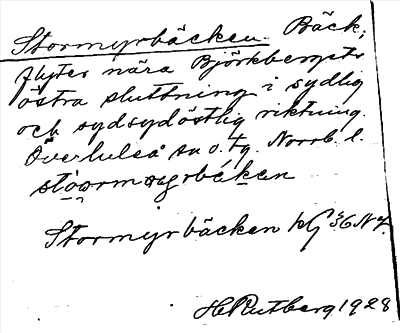 Stormyrbäcken. Bäck;
flyter nära Björkbergets
östra sluttning i sydlig
och sydsydöstlig riktning.
Överluleå sn o. tg. Norrb. l.
Stormyrbäcken kg 36 N 7.
H. Rutberg 1928